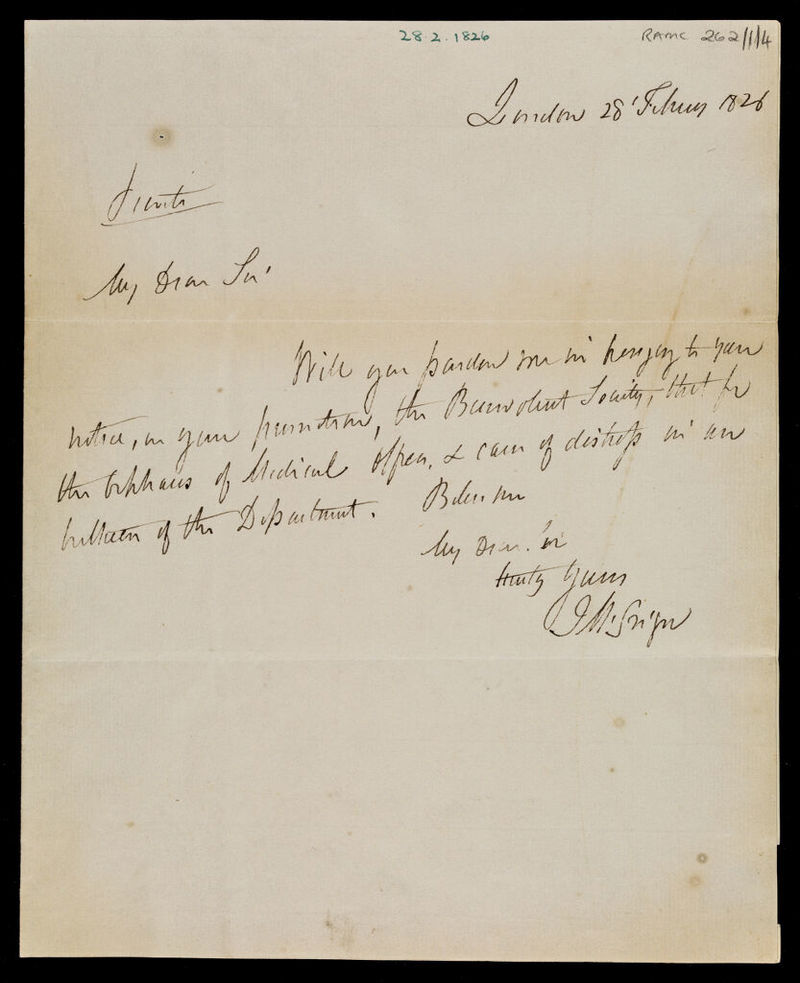 28.2.1826
RAMC 262/1/4
London 28' Febrery 1826
Private
My Dear Sir
Will you pardon me in bringing to your
notice, on your promotion, the Benevolent Society, that for
the Orphans of Medical Officers, & cases of distress in an
of the Department. Believe me
My Dear Sir
truly Yours
J McGrigor